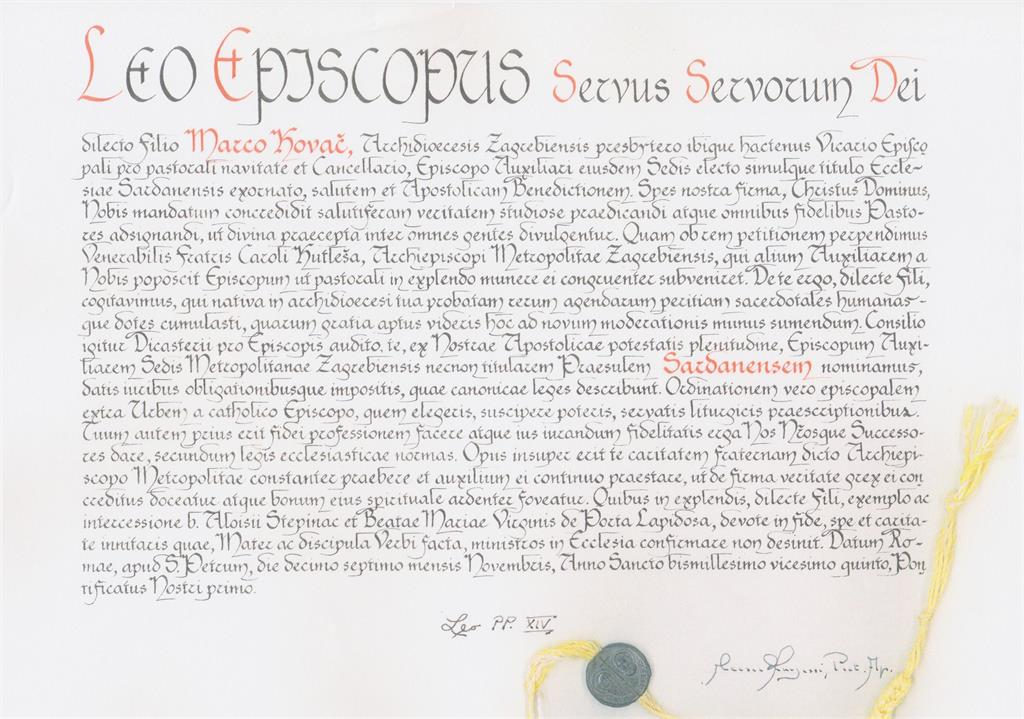 Leo Episcopus Servus Servorum Dei
dilecto Filio Marco Kovač, Archidioecesis Zagrebiensis presbytero ibique hactenus Vicario Episco
pali pro pastorali navitate et Cancellario, Episcopo Auxiliari eiusdem Sedis electo simulque titulo Eccle-
siae Sardanensis exornato, salutem et Apostolicam Benedictionem. Spes nostra firma, Christus Dominus,
Nobis mandatum concredidit salutiferam veritatem studiose praedicandi atque omnibus fidelibus Pasto-
res adsignandi, ut divina praecepta inter omnes gentes divulgentur. Quam ob rem petitionem perpendimus
Venerabilis Fratris Caroli Kutleša, Archiepiscopi Metropolitae Zagrebiensis, qui alium Auxiliarem a
Nobis poposcit Episcopum ut pastorali in explendo munere ei congruenter subveniret. De te ergo, dilecte Fili,
cogitavimus, qui nativa in archidioecesi tua probatam rerum agendarum peritiam sacerdotales humanas-
que dotes cumulasti, quarum gratia aptus videris hoc ad novum moderationis munus sumendum. Consilio
igitur Dicasterii pro Episcopis audito, te, ex Nostrae Apostolicae potestatis plenitudine, Episcopum Auxi-
liarem Sedis Metropolitanae Zagrebiensis necnon titularem Praesulem Sardanensem nominamus,
datis iuribus obligationibusque impositis, quae canonicae leges describunt. Ordinationem vero episcopalem
extra Urbem a catholico Episcopo, quem elegeris, suscipere poteris, servatis liturgicis praescriptionibus.
Tuum autem prius erit fidei professionem facere atque ius iurandum fidelitatis erga Nos Nrosque Successo-
res dare, secundum legis ecclesiasticae normas. Opus insuper erit te caritatem fraternam dicto Archiepi-
scopo Metropolitae constanter praebere et auxilium ei continuo praestare, ut de firma veritate grex ei con
creditus doceatur atque bonum eius spirituale ardenter foveatur. Quibus in explendis, dilecte Fili, exemplo ac
intercessione b. Aloisii Stepinac et Beatae Mariae Virginis de Porta Lapidosa, devote in fide, spe et carita-
te innitaris quae, Mater ac discipula Verbi facta, ministros in Ecclesia confirmare non desinit. Datum Ro-
mae, apud S. Petrum, die decimo septimo mensis Novembris, Anno Sancto bismillesimo vicesimo quinto, Pon
tificatus Nostri primo.
Leo PP. XIV